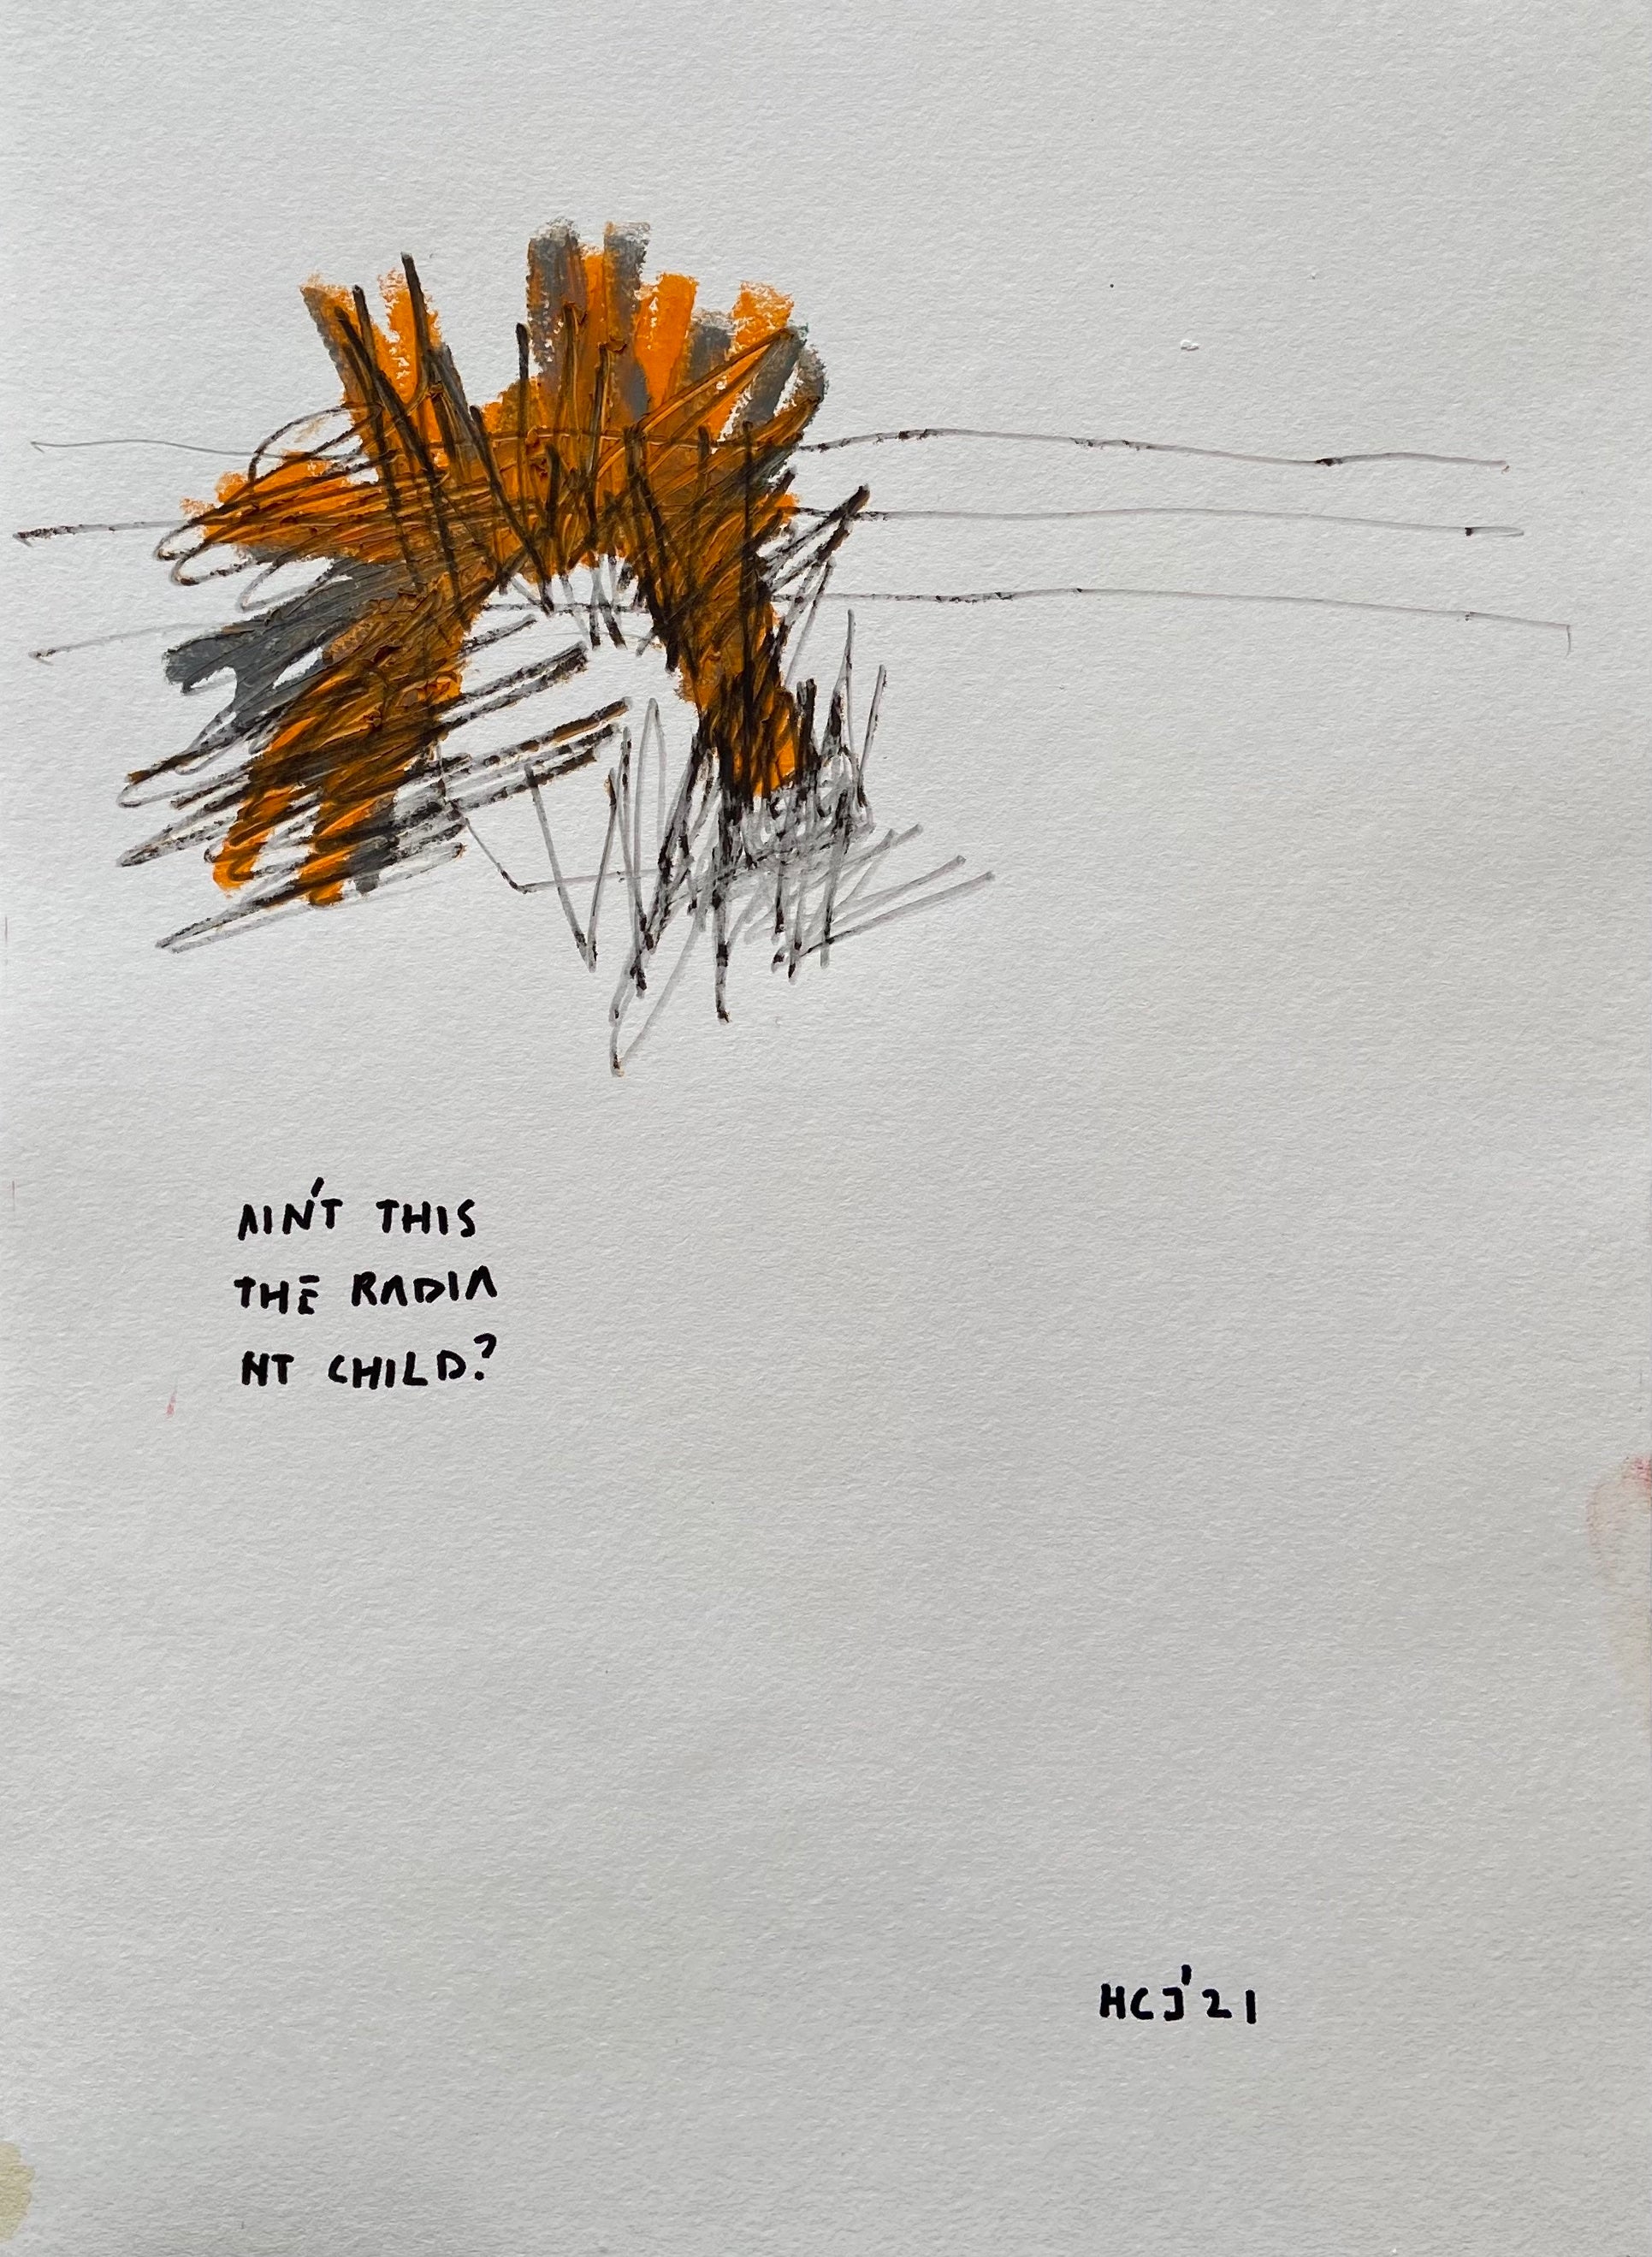 AIN'T THIS
THE RADIA
NT CHILD?
HCJ'21